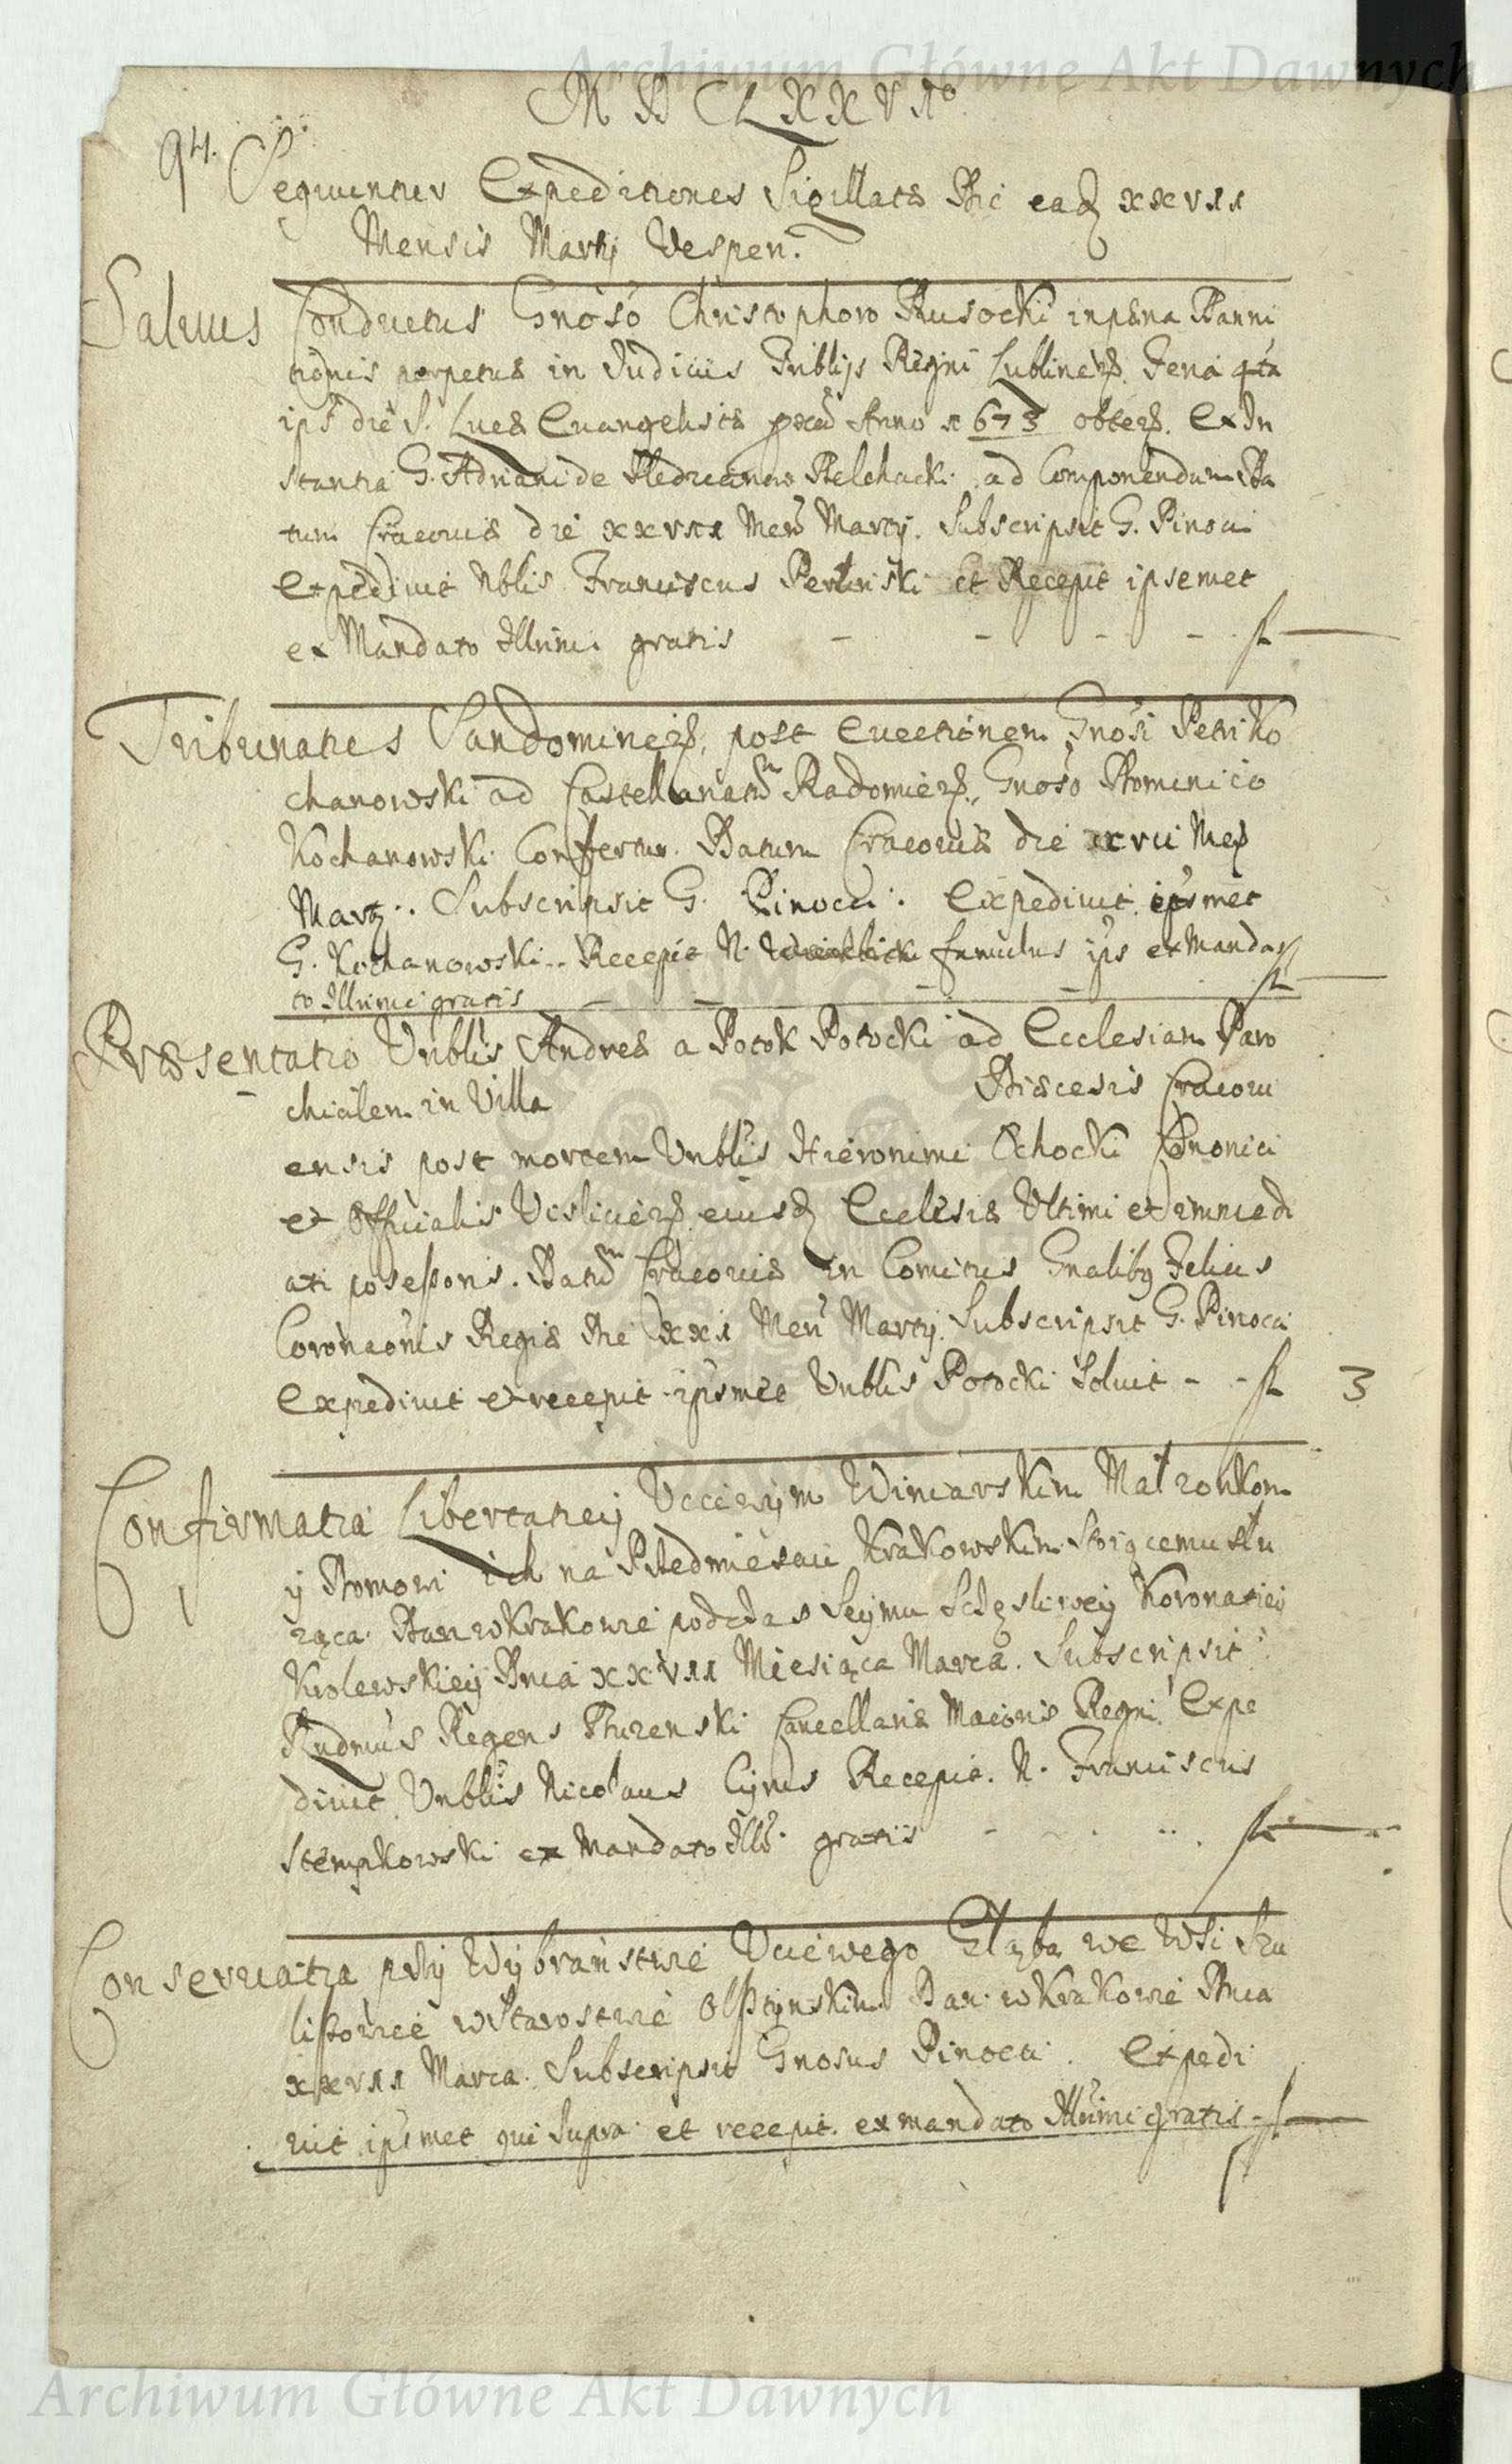 Archiwum Główne Akt Dawnych
M D CLXXVIº
94. Sequuntur Expeditiones Sigillatæ Die eadē xxvii
Mensis Martij Vesperi.
Salvus Conductus Gnoso Christophoro Rusocki in pæna Banni
tionis perpetuæ in Judicijs Triblijs Regni Lublineñ. Feria
ips die S. Lucæ Evangelistæ Anno 1673 obteñ. Ex In
stantia G. Adriani de Belchacki ad Componendum Da
tum Cracoviæ die xxvii Meñ Martij. Subscripsit G. Pinoci
Expedivit Nblis Franciscus et Recepit ipsemet
ex Mandato Illrimi gratis - - - - fl —
Tribunatus Sandomireñ. post evectionem Gnosi Petri Ko
chanowski ad Castellanatū Radomieñ. Gnoso Dominico
Kochanowski Confertur. Datum Cracoviæ die xxvii Meñ
Martij. Subscripsit G. Pinocci. Expedivit ipsmet
G. Kochanowski. Recepit N. famulus ips ex Manda
to Illrimi gratis - - - - fl —
Præsentatio Vnblis Andreæ a Potok Potocki ad Ecclesiam Paro
chialem in Villa Diæcesis Cracovi
ensis post mortem Vnblis Hieronimi Ochocki Canonici
et Officialis Visliceñ. eiusdē Ecclesiæ Vltimi et immedi
ati posessoris. Datū Cracoviæ in Comitiis Gnalibq Felicis
Coronaonis Regiæ Die xxi Meñ Martij. Subscripsit G. Pinoci
Expedivit et recepit ipsmet Vnblis Potocki Soluit - - fl 3
Confirmatia Libertatiey Vcciwym Winiarskim Matzonkom
y Domowi ich na Przedmiesciu Krakowskim Stoiącemu słu
ząca. Dan w Krakowie podczas Seymu Scżęsliwey Koronatiey
Krolewskiey Dnia xxvii Miesiąca Marca. Subscripsit
Rndmus Regens Cancellariæ Maioris Regni. Expe
divit Vnblis Nicolaus Cyrus Recepit. N. Franciscus
Stempkowski ex Mandato Ills gratis - - - - fl —
Conservatia przy Wybranstwie Vcciwego Głąba we Wsi Szu
w Starostwie Olsztynskim. Dan w Krakowie Dnia
xxvii Marca. Subscripsit Gnosus Pinoci. Expedi
vit ipsmet qui supra et recepit ex mandato Illrimi gratis - fl —
Archiwum Główne Akt Dawnych